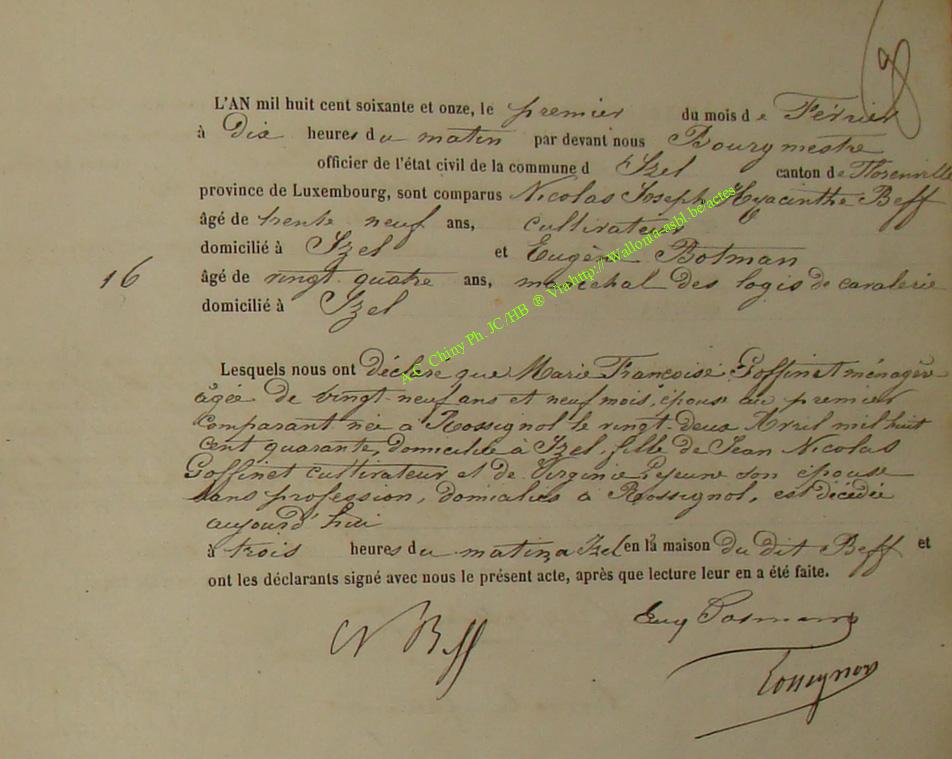 8
L'AN mil huit cent soixante et onze, le premier du mois de Février
à Dix heures du matin par devant nous Bourgmestre
officier de l'état civil de la commune d'Izel canton de Florenville
province de Luxembourg, sont comparus Nicolas Joseph Hyacinthe Beff
âgé de trente neuf ans, cultivateur
domicilié à Izel et Eugène Botman
16 âgé de vingt quatre ans, maréchal des logis de cavalerie
domicilié à Izel
A.E. Chiny Ph. JC/HB ® Via http://Wallonia-asbl.be/actes
Lesquels nous ont déclaré que Marie Françoise Goffinet ménagère
âgée de vingt-neuf ans et neuf mois, épouse au premier
comparant née à Rossignol le vingt-deux Avril mil huit
cent quarante, domiciliée à Izel, fille de Jean Nicolas
Goffinet cultivateur et de Virginie Lejeune son épouse
sans profession, domiciliés à Rossignol, est décédée
aujourd'hui
à trois heures du matin à Izel en la maison du dit Beff et
ont les déclarants signé avec nous le présent acte, après que lecture leur en a été faite.
N Beff
Eug